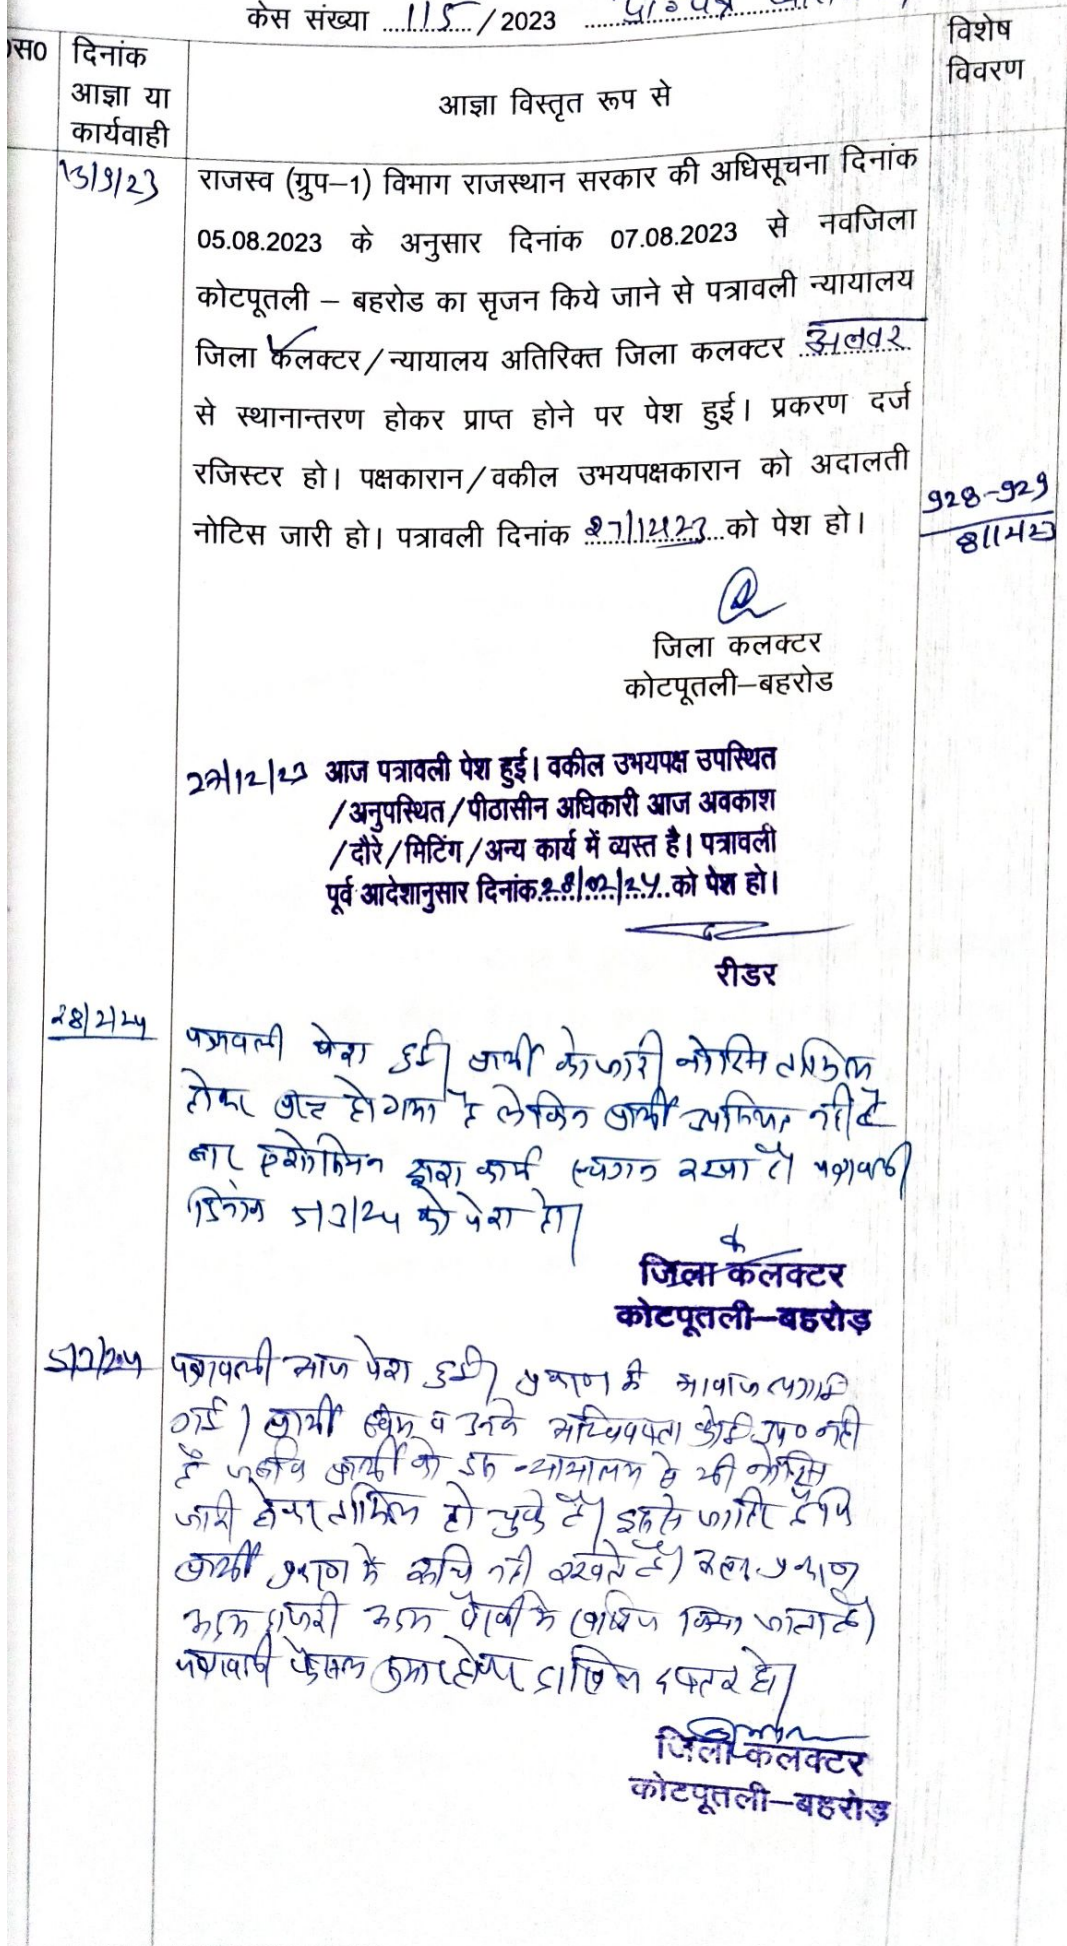 केस संख्या 115/2023
स0 दिनांक आज्ञा या कार्यवाही
आज्ञा विस्तृत रूप से
विशेष विवरण
13/9/23
राजस्व (ग्रुप–1) विभाग राजस्थान सरकार की अधिसूचना दिनांक
05.08.2023 के अनुसार दिनांक 07.08.2023 से नवजिला
कोटपूतली – बहरोड का सृजन किये जाने से पत्रावली न्यायालय
जिला कलक्टर/न्यायालय अतिरिक्त जिला कलक्टर अलवर
से स्थानान्तरण होकर प्राप्त होने पर पेश हुई। प्रकरण दर्ज
रजिस्टर हो। पक्षकारान/वकील उभयपक्षकारान को अदालती
नोटिस जारी हो। पत्रावली दिनांक 27/12/23 को पेश हो।
928-929
जिला कलक्टर
कोटपूतली–बहरोड
27/12/23 आज पत्रावली पेश हुई। वकील उभयपक्ष उपस्थित
/अनुपस्थित/पीठासीन अधिकारी आज अवकाश
/दौरे/मिटिंग/अन्य कार्य में व्यस्त है। पत्रावली
पूर्व आदेशानुसार दिनांक 28/02/24 को पेश हो।
रीडर
28/2/24
पत्रावली पेश हुई। प्रार्थी को जारी नोटिस तामिल
होकर प्राप्त हो गया है लेकिन प्रार्थी उपस्थित नहीं है
बार एसोसियेशन द्वारा कार्य स्थगन रखा है। पत्रावली
दिनांक 5/3/24 को पेश हो।
जिला कलक्टर
कोटपूतली–बहरोड़
5/3/24
पत्रावली आज पेश हुई। प्रकरण में आवाज लगाई
गई। प्रार्थी स्वयं व उनके अधिवक्ता कोई उप0 नही
है जबकि प्रार्थी को इस न्यायालय से भी नोटिस
जारी होकर तामिल हो चुके है। इससे जाहिर है कि
प्रार्थी प्रकरण में रूचि नही रखते है। अतः प्रकरण
अदम हाजरी अदम पैरवी में खारिज किया जाता है।
पत्रावली फैसल शुमार होकर दाखिल दफ्तर हो।
जिला कलक्टर
कोटपूतली–बहरोड़